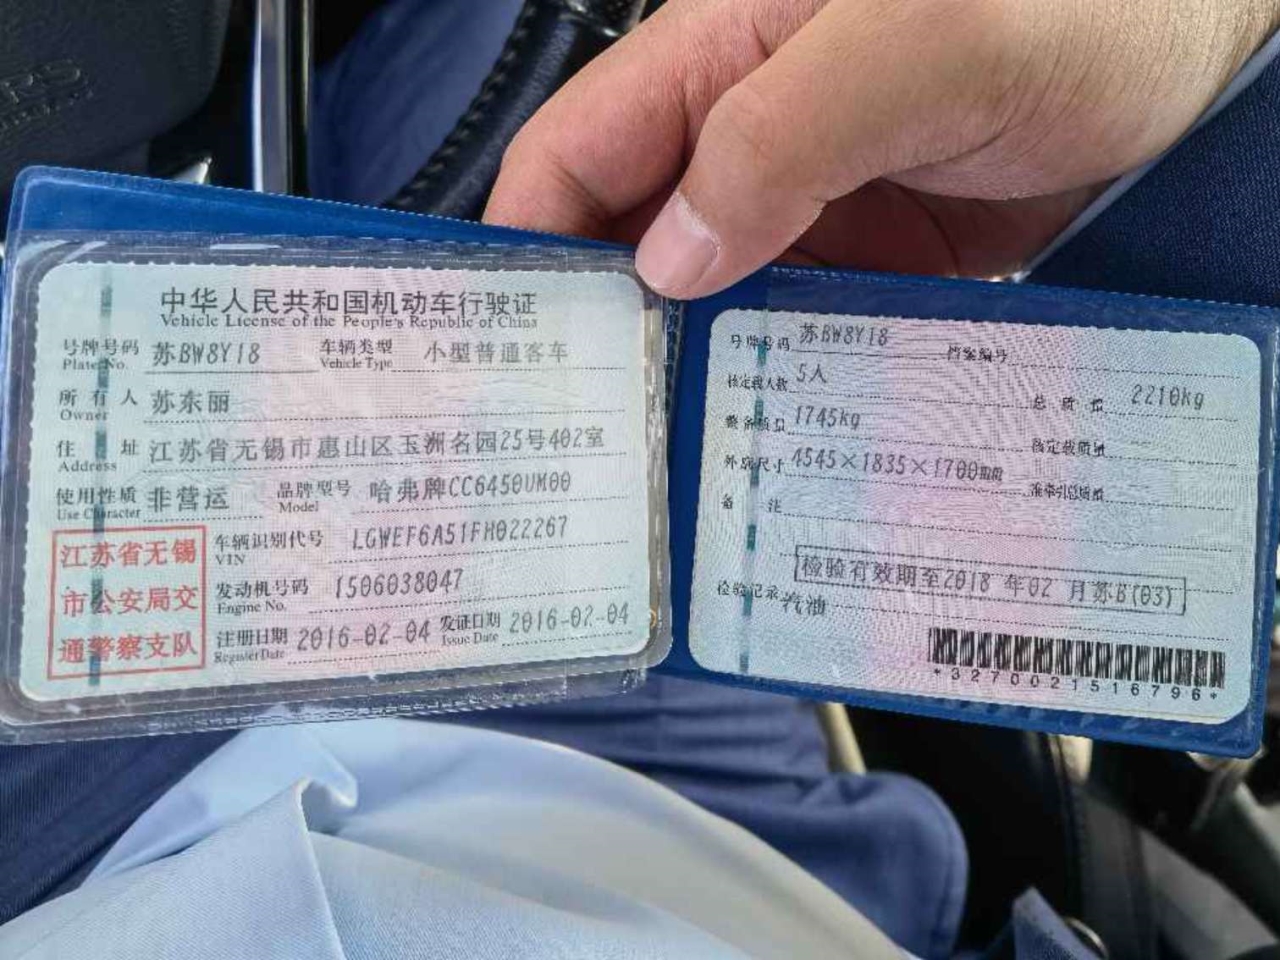 中华人民共和国机动车行驶证
Vehicle License of the People's Republic of China
号牌号码 苏BW8Y18 车辆类型 小型普通客车
Plate No. Vehicle Type
所有人 苏东丽
Owner
住址 江苏省无锡市惠山区玉洲名园25号402室
Address
使用性质 非营运 品牌型号 哈弗牌CC6450UM00
Use Character Model
江苏省无锡
市公安局交
通警察支队
车辆识别代号 LGWEF6A51FH022267
VIN
发动机号码 1506038047
Engine No.
注册日期 2016-02-04 发证日期 2016-02-04
Register Date Issue Date
号牌号码 苏BW8Y18 档案编号
核定载人数 5人 总质量 2210kg
整备质量 1745kg 核定载质量
外廓尺寸 4545×1835×1700mm 准牵引总质量
备注
检验有效期至2018年02月苏B(03)
检验记录 汽油
*3270021516796*